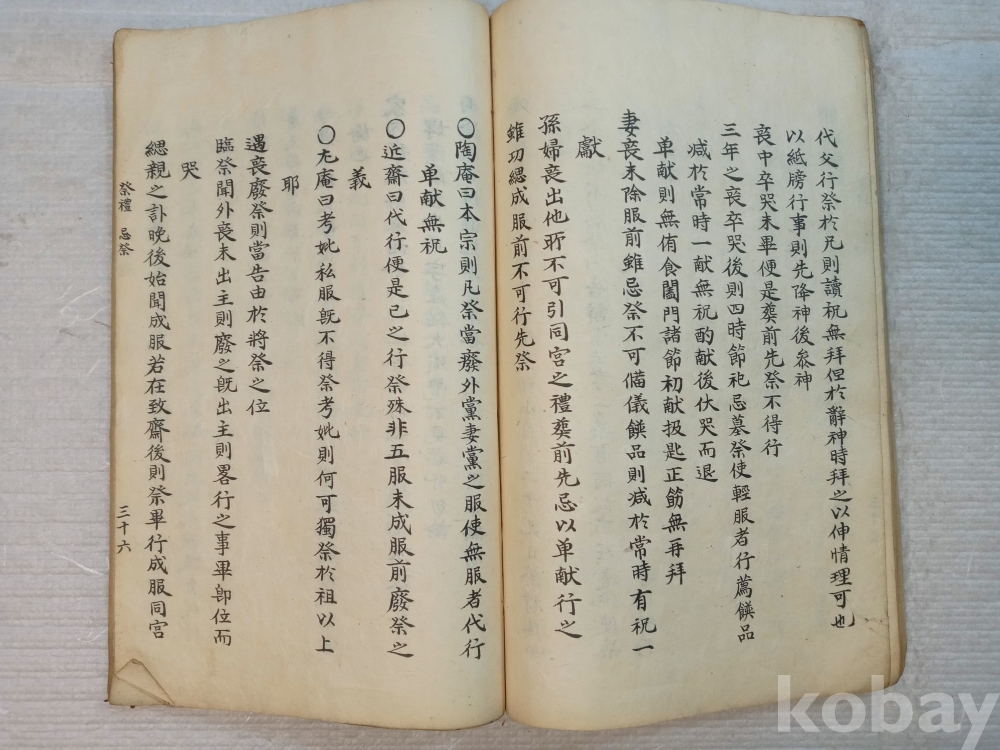 代父行祭於兄則讀祝無拜但於辭神時拜之以伸情理可也
以紙牓行事則先降神後叅神
喪中卒哭未畢便是葬前先祭不得行
三年之喪卒哭後則四時節祀忌墓祭使輕服者行薦饌品
减於常時一献無祝酌献後伏哭而退
单献則無侑食闔門諸節初献扱匙正筯無再拜
妻喪未除服前雖忌祭不可備儀饌品則减於常時有祝一
獻
孫婦喪出他所不可引同宮之禮葬前先忌以单献行之
雖功緦成服前不可行先祭
○陶庵曰本宗則凡祭當癈外黨妻黨之服使無服者代行
单献無祝
○近齋曰代行便是已之行祭殊非五服未成服前廢祭之
義
○尤庵曰考妣私服旣不得祭考妣則何可獨祭於祖以上
耶
遇喪廢祭則當告由於將祭之位
臨祭聞外喪未出主則廢之旣出主則畧行之事畢卽位而
哭
緦親之訃晩後始聞成服若在致齋後則祭畢行成服同宮
祭禮 忌祭 三十六
kobay